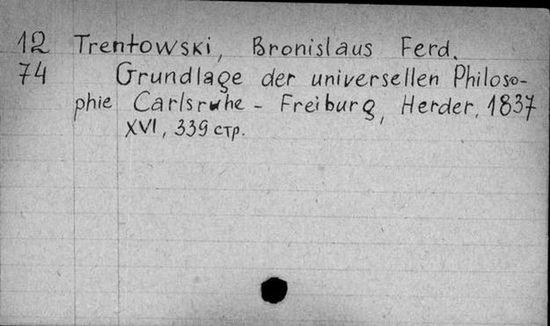 12 Trentowski, Bronislaus Ferd.
74 Grundlage der universellen Philoso-
phie Carlsruhe - Freiburg, Herder, 1837
XVI, 339 стр.